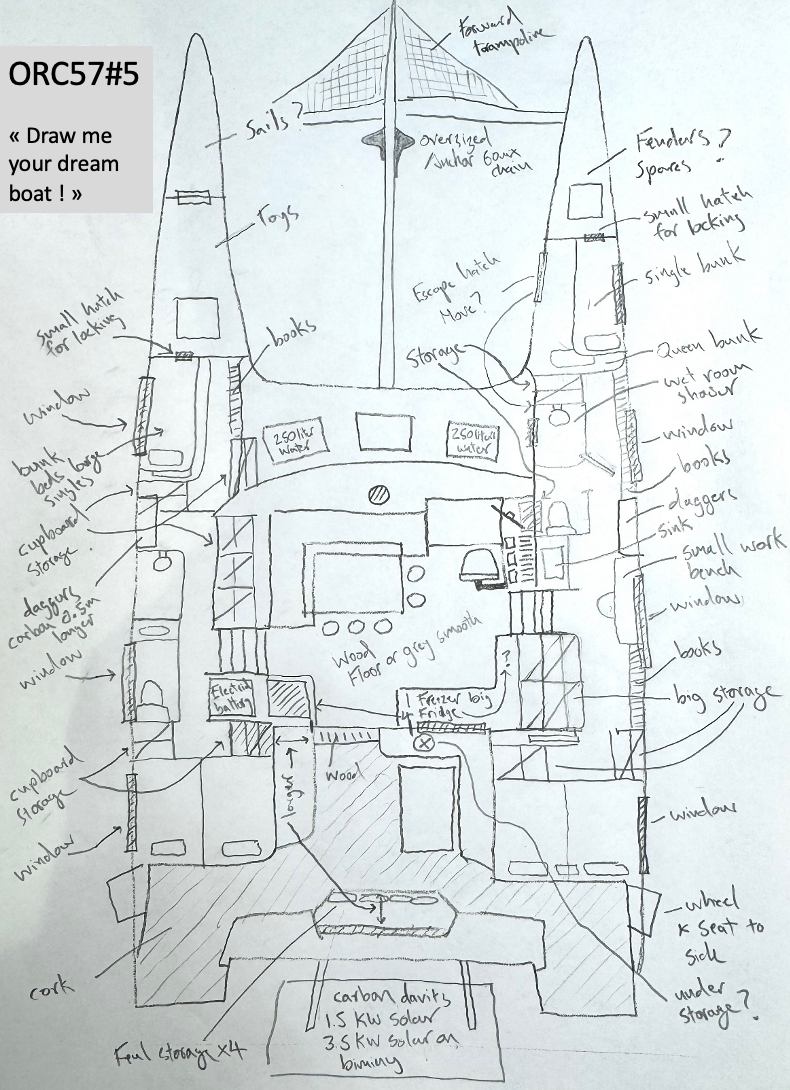 ORC57#5
« Draw me
your dream
boat ! »
Forward
trampoline
Sails ?
oversized
Anchor 60mx
chain
Fenders ?
Spares
small hatch
for locking
Togs
single bunk
Escape hatch
Move?
small hatch
for locking
books
Storage
Queen bunk
wet room
shower
window
250 liter
water
250 liter
water
window
bunk
beds large
singles
books
daggers
cupboard
storage
sink
small work
bench
daggers
carbon 0.5m
longer
window
Wood
Floor or grey smooth
window
?
books
Electrical
battery
1 Freezer big
Fridge
big storage
cupboard
storage
wood
longer
window
window
wheel
x seat to
sick
cork
under
storage?
carbon davits
1.5 KW solar
3.5 KW solar on
biminy
Feul storage x4